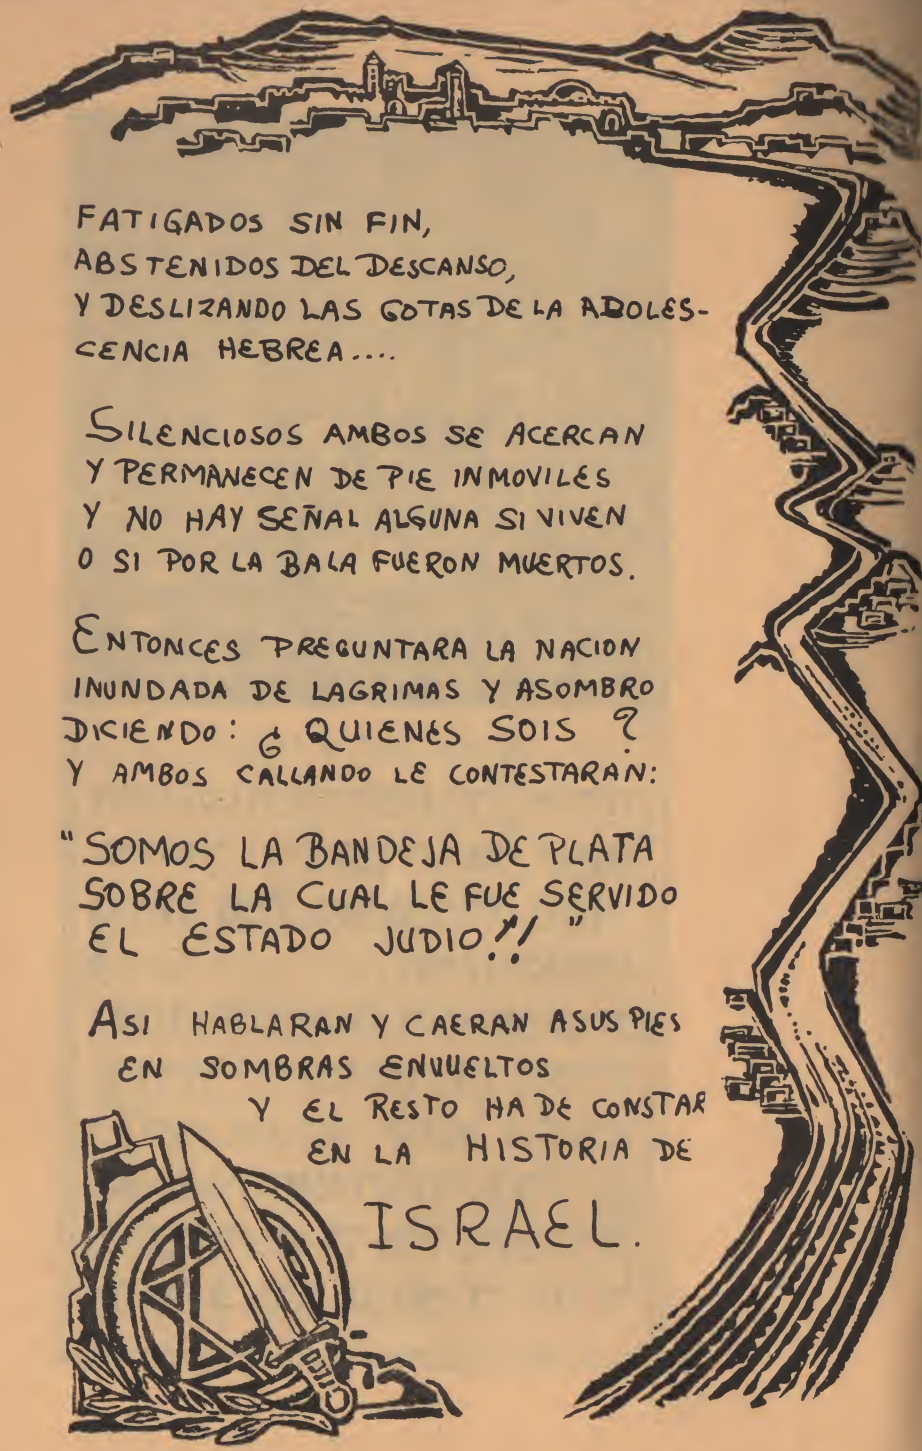 FATIGADOS SIN FIN,
ABSTENIDOS DEL DESCANSO,
Y DESLIZANDO LAS GOTAS DE LA ADOLES-
CENCIA HEBREA....
SILENCIOSOS AMBOS SE ACERCAN
Y PERMANECEN DE PIE INMOVILES
Y NO HAY SEÑAL ALGUNA SI VIVEN
O SI POR LA BALA FUERON MUERTOS.
ENTONCES PREGUNTARA LA NACION
INUNDADA DE LAGRIMAS Y ASOMBRO
DICIENDO: ¿QUIENES SOIS?
Y AMBOS CALLANDO LE CONTESTARAN:
"SOMOS LA BANDEJA DE PLATA
SOBRE LA CUAL LE FUE SERVIDO
EL ESTADO JUDIO!!"
ASI HABLARAN Y CAERAN A SUS PIES
EN SOMBRAS ENVUELTOS
Y EL RESTO HA DE CONSTAR
EN LA HISTORIA DE
ISRAEL.